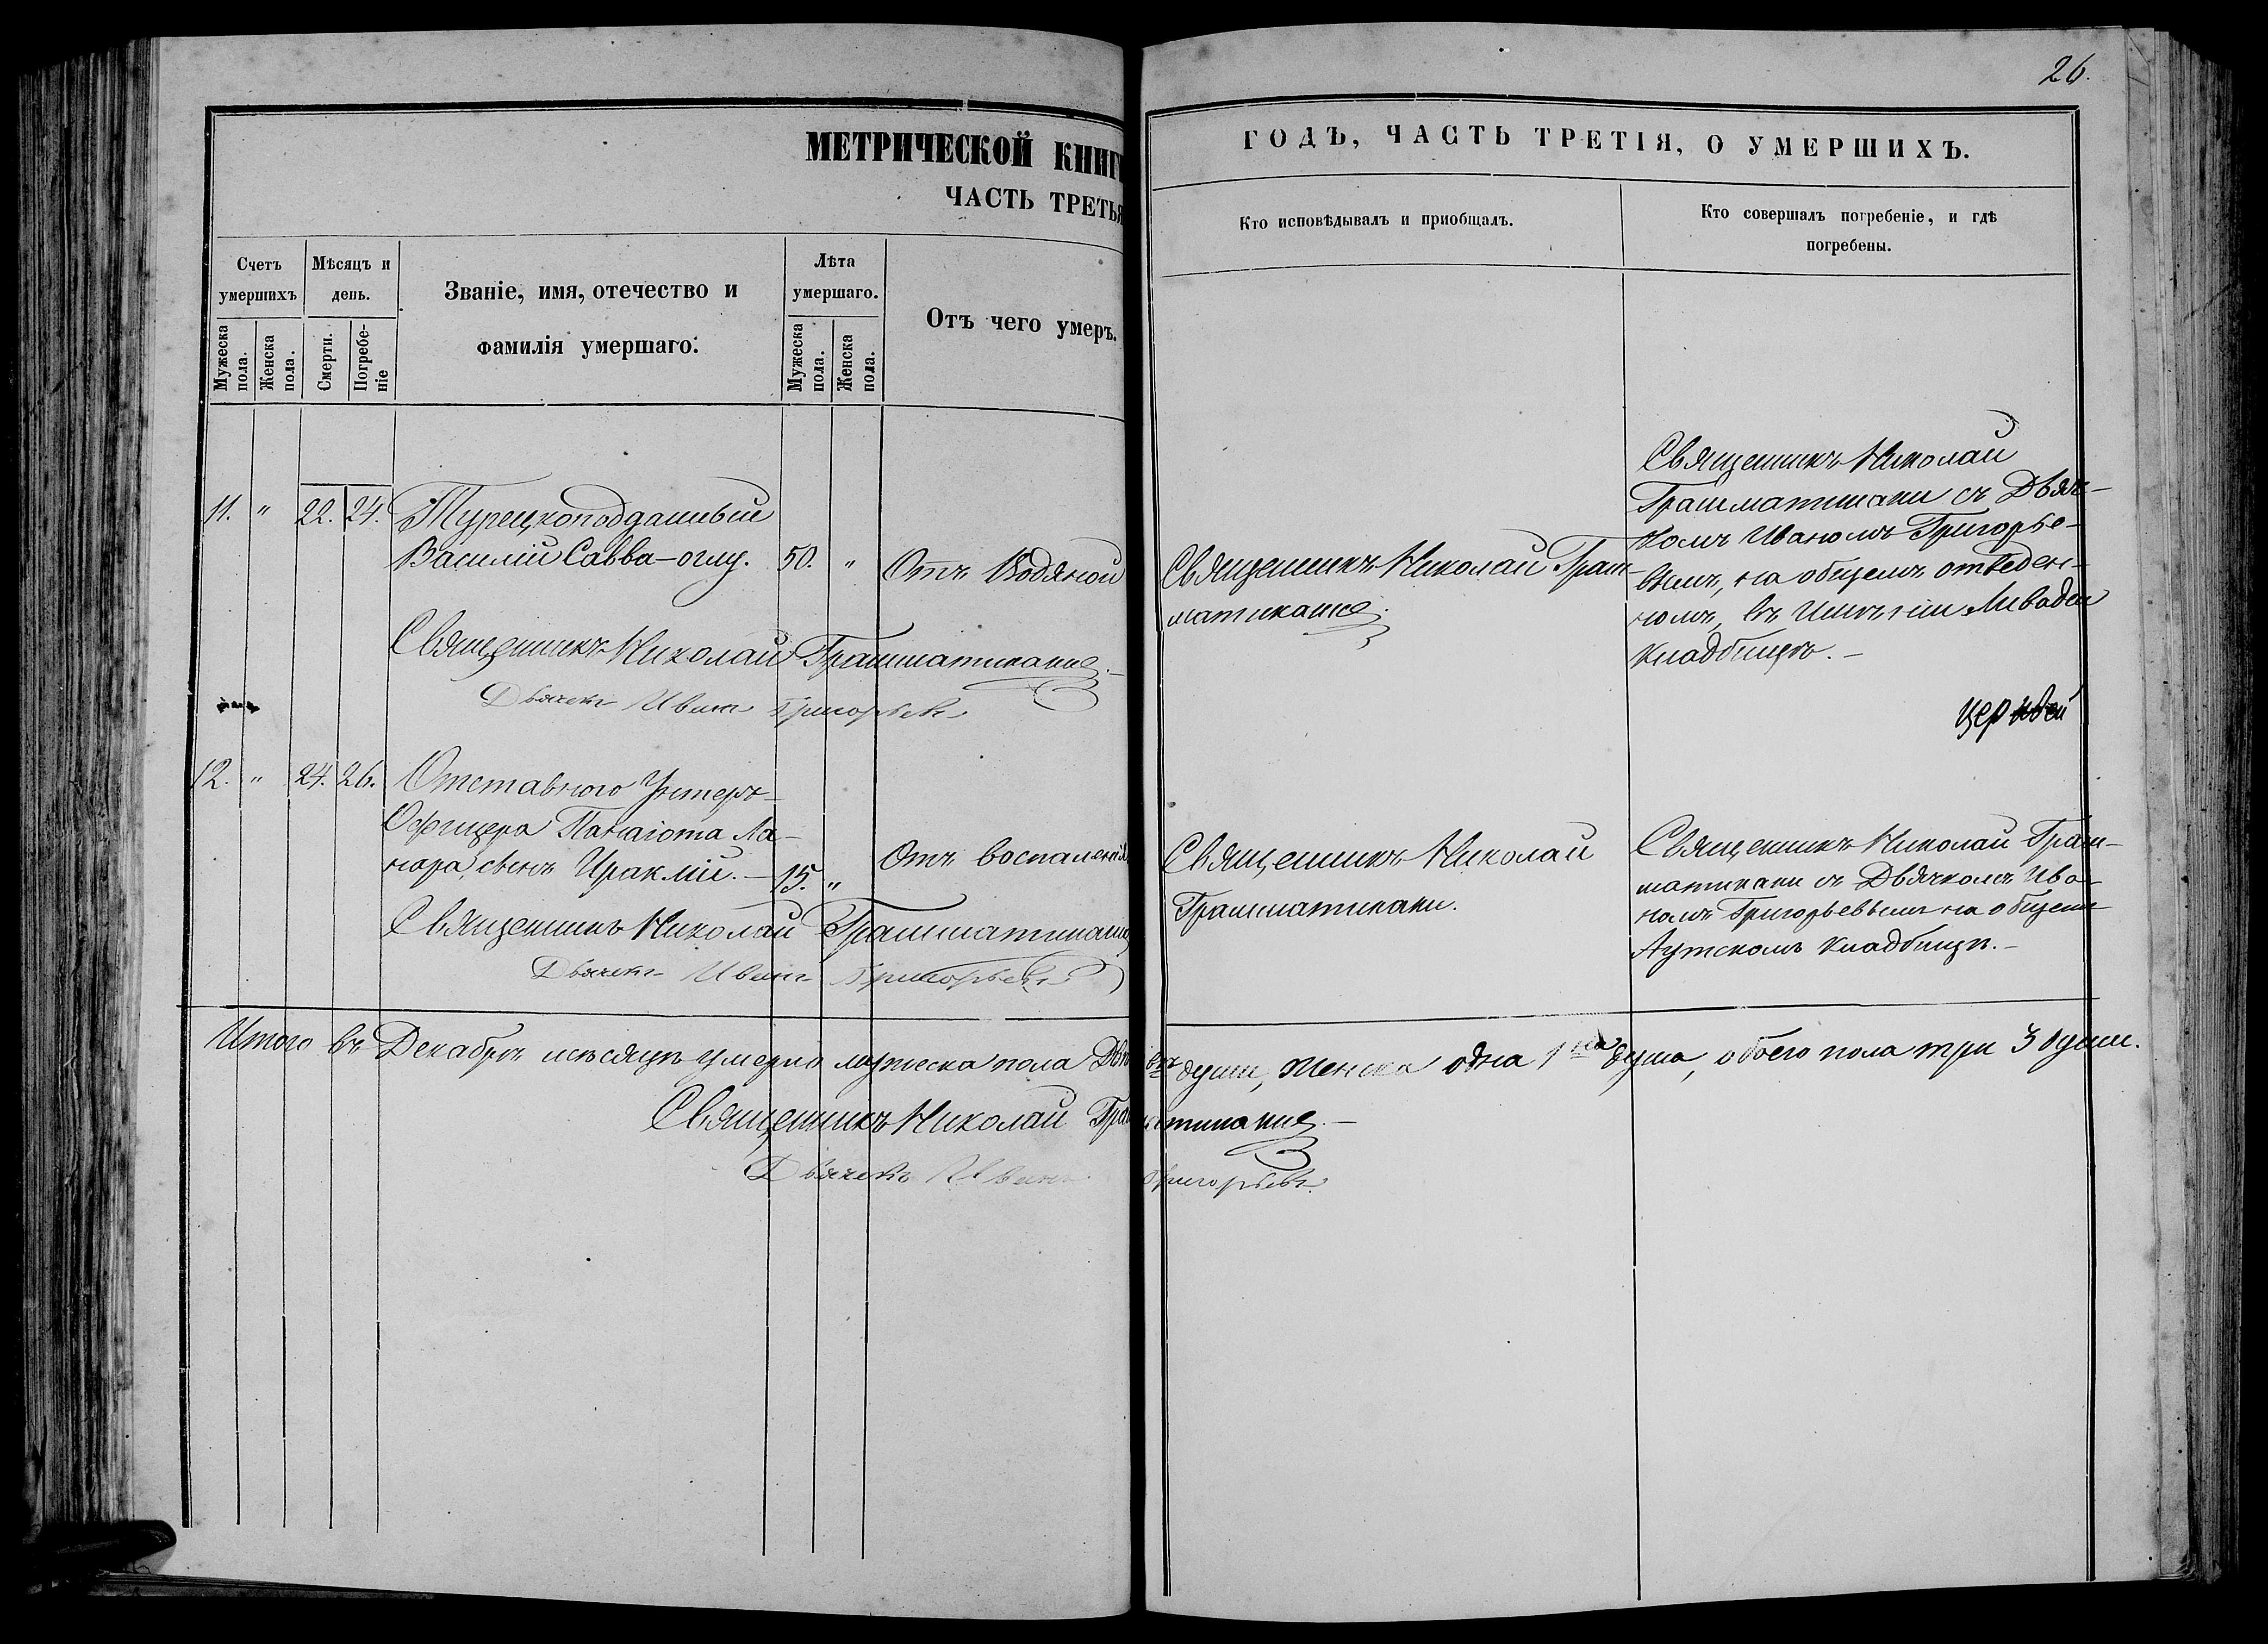 26.
МЕТРИЧЕСКОЙ КНИГ
ЧАСТЬ ТРЕТЬЯ
Счетъ умершихъ
Мѣсяцъ и день.
Званіе, имя, отечество и фамилія умершаго.
Лѣта умершаго.
Отъ чего умеръ.
Мужеска пола.
Женска пола.
Смерти.
Погребеніе
Мужеска пола.
Женска пола.
11. " 22. 24. Турецкоподданный
Василій Савва-оглу. 50. " Отъ Водяной
Священникъ Николай Грамматикани.
Дьячекъ Иванъ Григорьевъ
12. " 24. 26. Отставного Унтеръ-
Офицера Панаіота Ла-
нара, сынъ Ираклій. — 15. " Отъ воспаленія
Священникъ Николай Грамматикани
Дьячекъ Иванъ Григорьевъ
ГОДЪ, ЧАСТЬ ТРЕТІЯ, О УМЕРШИХЪ.
Кто исповѣдывалъ и приобщалъ.
Кто совершалъ погребеніе, и гдѣ
погребены.
Священникъ Николай Грам-
матикани.
Священникъ Николай
Грамматикани съ Дьяч-
комъ Иваномъ Григорье-
вымъ, на общемъ отведен-
номъ, въ Имѣніи Ливадіи
кладбищѣ. —
церквей
Священникъ Николай
Грамматикани.
Священникъ Николай Грам-
матикани съ Дьячкомъ Ива-
номъ Григорьевымъ на общемъ
Аутскомъ кладбищѣ. —
Итого въ Декабрѣ мѣсяцѣ умерло мужеска пола Двѣ души, Женска одна 1 душа, обоего пола три 3 души.
Священникъ Николай Грамматикани. —
Дьячекъ Иванъ Григорьевъ.